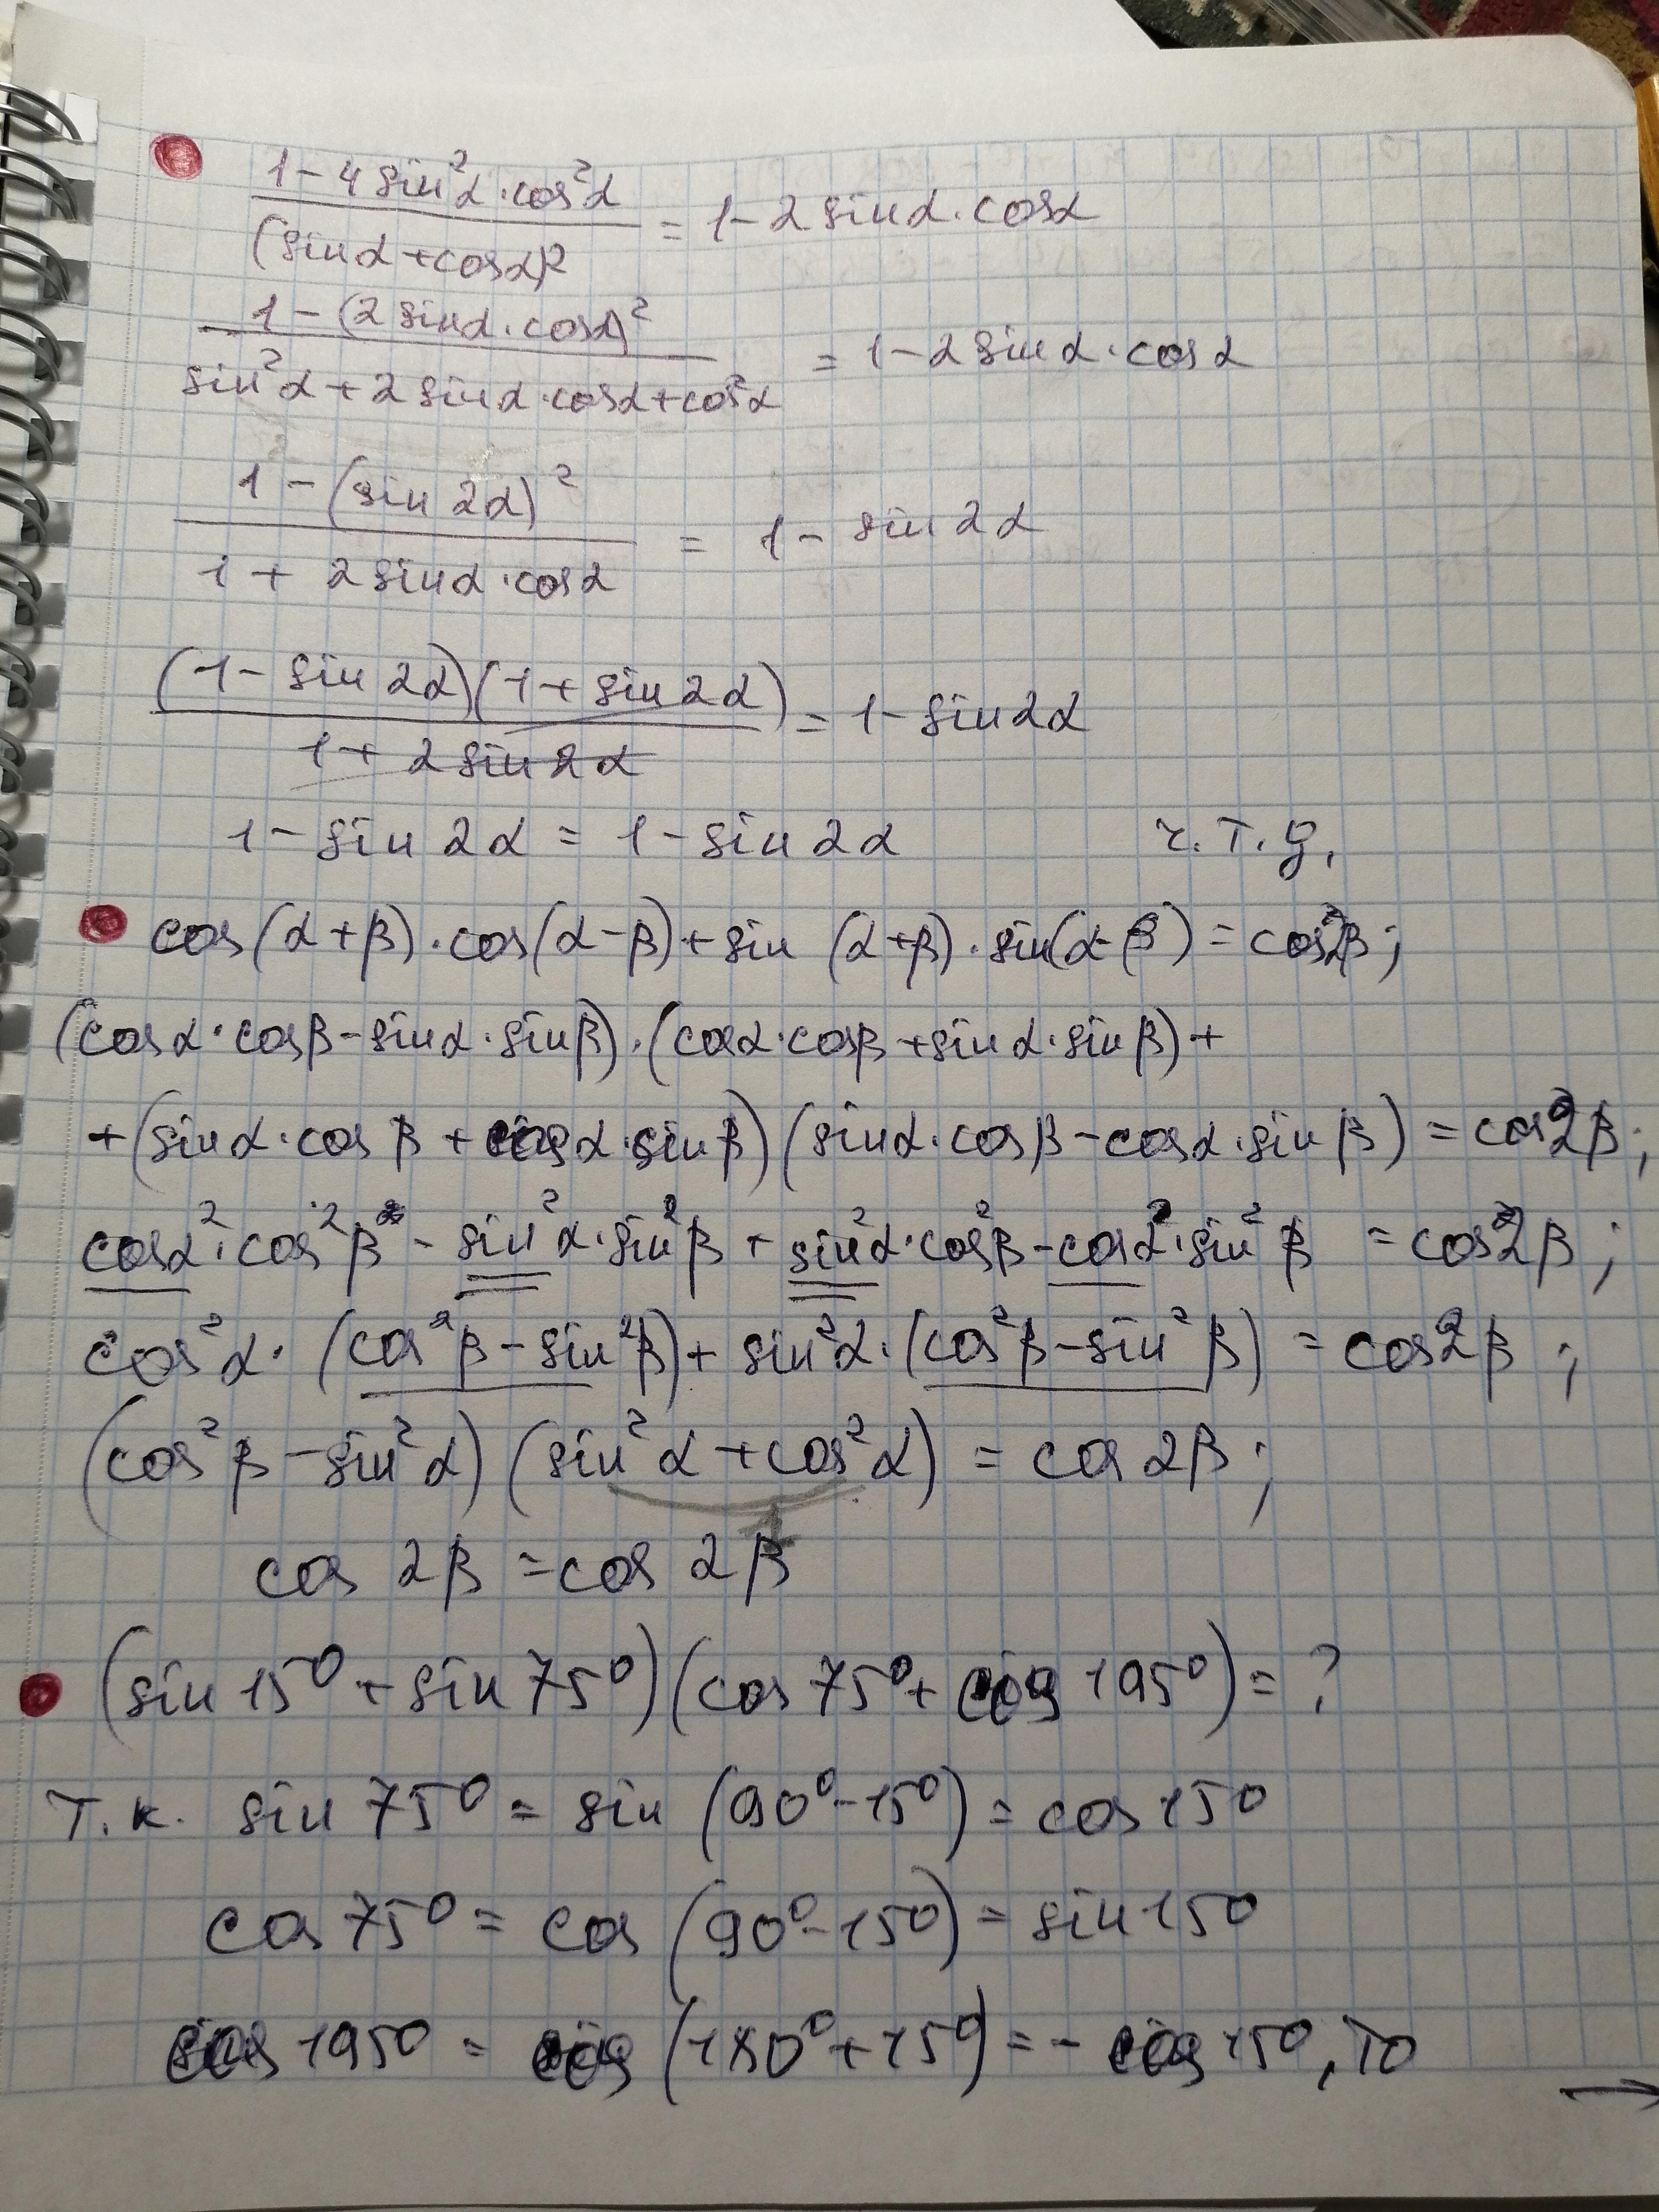 1-4sin²α·cos²α / (sinα+cosα)² = 1-2sinα·cosα
1-(2sinα·cosα)² / sin²α+2sinα·cosα+cos²α = 1-2sinα·cosα
1-(sin2α)² / 1+2sinα·cosα = 1-sin2α
(1-sin2α)(1+sin2α) / 1+2sin2α = 1-sin2α
1-sin2α = 1-sin2α ч.т.д.
cos(α+β)·cos(α-β)+sin(α+β)·sin(α-β)=cos2β;
(cosα·cosβ-sinα·sinβ)·(cosα·cosβ+sinα·sinβ)+
+(sinα·cosβ+cosα·sinβ)(sinα·cosβ-cosα·sinβ)=cos2β;
cos²α·cos²β-sin²α·sin²β+sin²α·cos²β-cos²α·sin²β=cos2β;
cos²α·(cos²β-sin²β)+sin²α·(cos²β-sin²β)=cos2β;
(cos²β-sin²α)(sin²α+cos²α)=cos2β;
1
cos2β=cos2β
(sin15°+sin75°)(cos75°+cos195°)=?
Т.к. sin75°=sin(90°-15°)=cos15°
cos75°=cos(90°-15°)=sin15°
cos195°=cos(180°+15°)=-cos15°, то
→